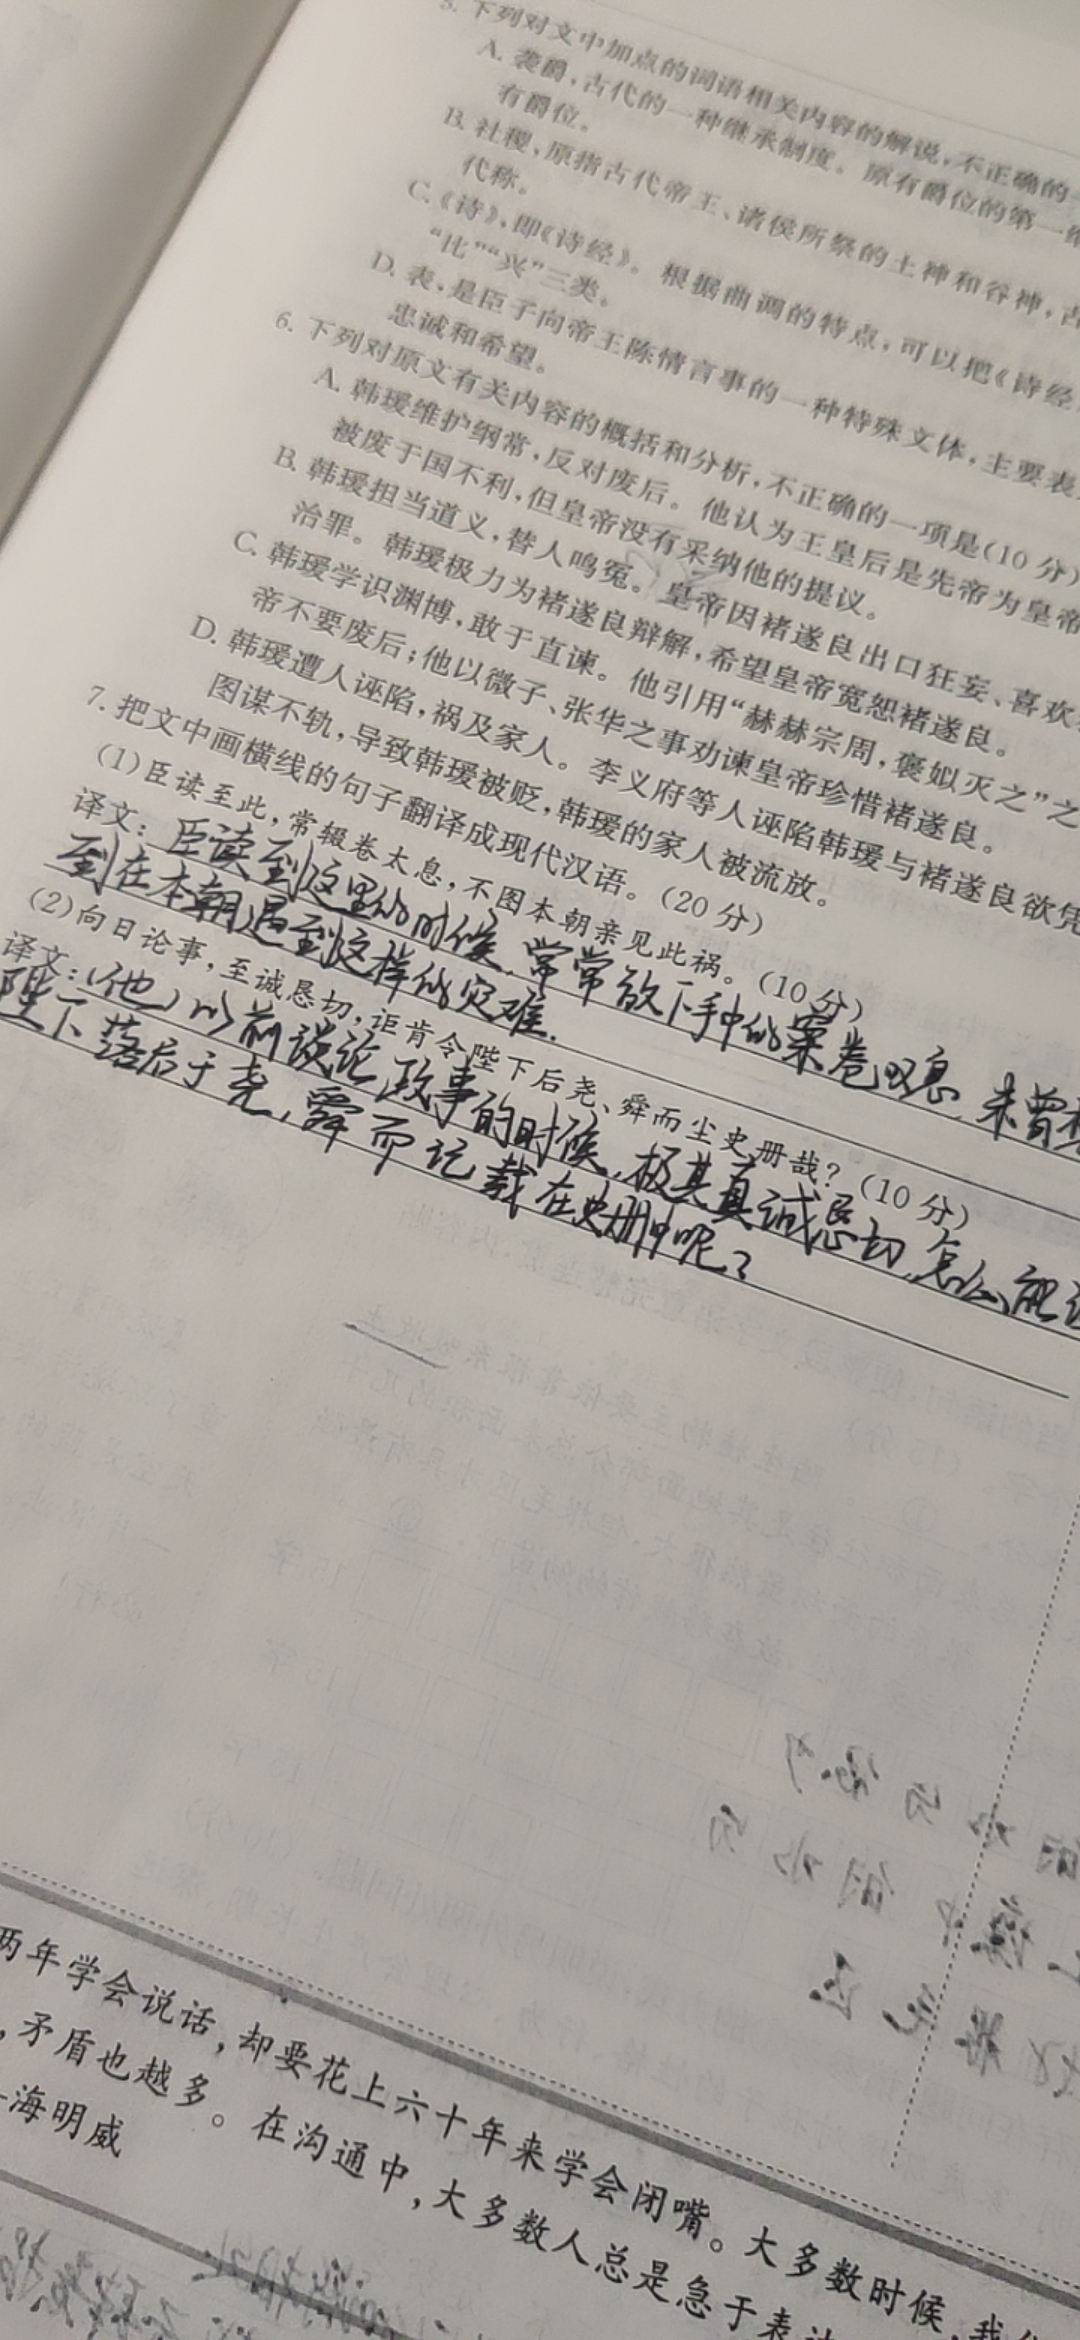 5. 下列对文中加点的词语相关内容的解说，不正确的一
A. 袭爵，古代的一种继承制度。原有爵位的第一
有爵位。
B. 社稷，原指古代帝王、诸侯所祭的土神和谷神，古
代称。
C.《诗》，即《诗经》。根据曲调的特点，可以把《诗经
“比”“兴”三类。
D. 表，是臣子向帝王陈情言事的一种特殊文体，主要表
忠诚和希望。
6. 下列对原文有关内容的概括和分析，不正确的一项是（10分）
A. 韩瑗维护纲常，反对废后。他认为王皇后是先帝为皇帝
被废于国不利，但皇帝没有采纳他的提议。
B. 韩瑗担当道义，替人鸣冤。皇帝因褚遂良出口狂妄、喜欢
治罪。韩瑗极力为褚遂良辩解，希望皇帝宽恕褚遂良。
C. 韩瑗学识渊博，敢于直谏。他引用“赫赫宗周，褒姒灭之”之
帝不要废后；他以微子、张华之事劝谏皇帝珍惜褚遂良。
D. 韩瑗遭人诬陷，祸及家人。李义府等人诬陷韩瑗与褚遂良欲凭
图谋不轨，导致韩瑗被贬，韩瑗的家人被流放。
7. 把文中画横线的句子翻译成现代汉语。（20分）
(1)臣读至此，常辍卷太息，不图本朝亲见此祸。（10分）
译文：臣读到这里的时候，常常放下手中的案卷叹息，未曾想
到在本朝遇到这样的灾难.
(2)向日论事，至诚恳切，讵肯令陛下后尧、舜而尘史册哉？（10分）
译文：(他)以前谈论政事的时候，极其真诚恳切，怎么能让
陛下落后于尧，舜而记载在史册中呢？
两年学会说话，却要花上六十年来学会闭嘴。大多数时候，我
，矛盾也越多。在沟通中，大多数人总是急于表达
海明威